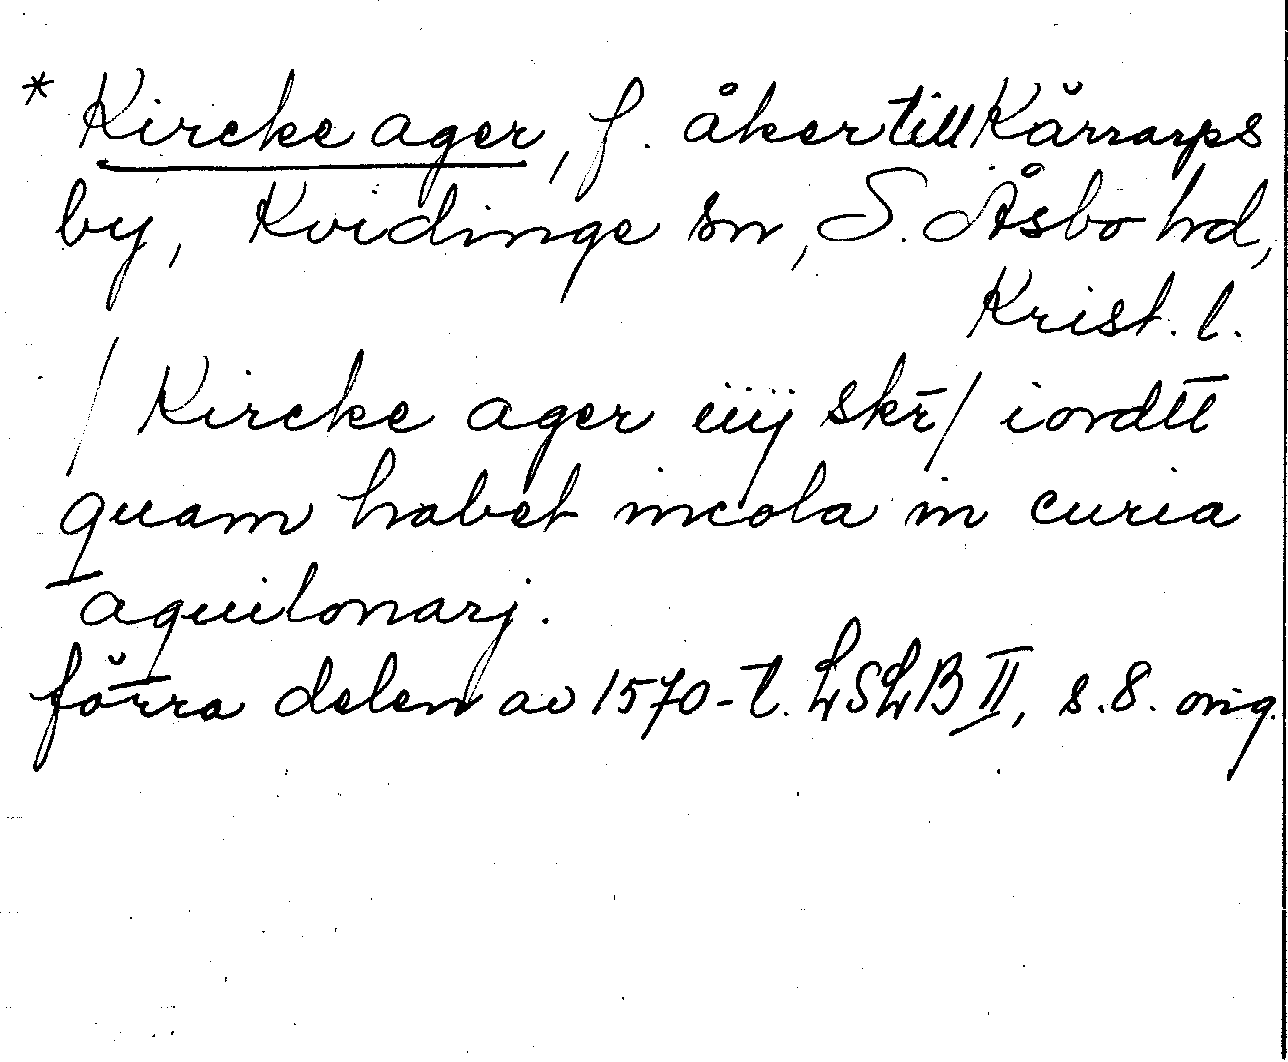 * Kircke ager, f. åker till Kårrarps
by, Kvidinge sn, S. Åsbo hd,
Krist. l.
/ Kircke ager iiij skr̄/ iordtt
quam habet incola in curia
aquilonarj.
förra delen av 1570-t. LSLB II, s. 8. orig.